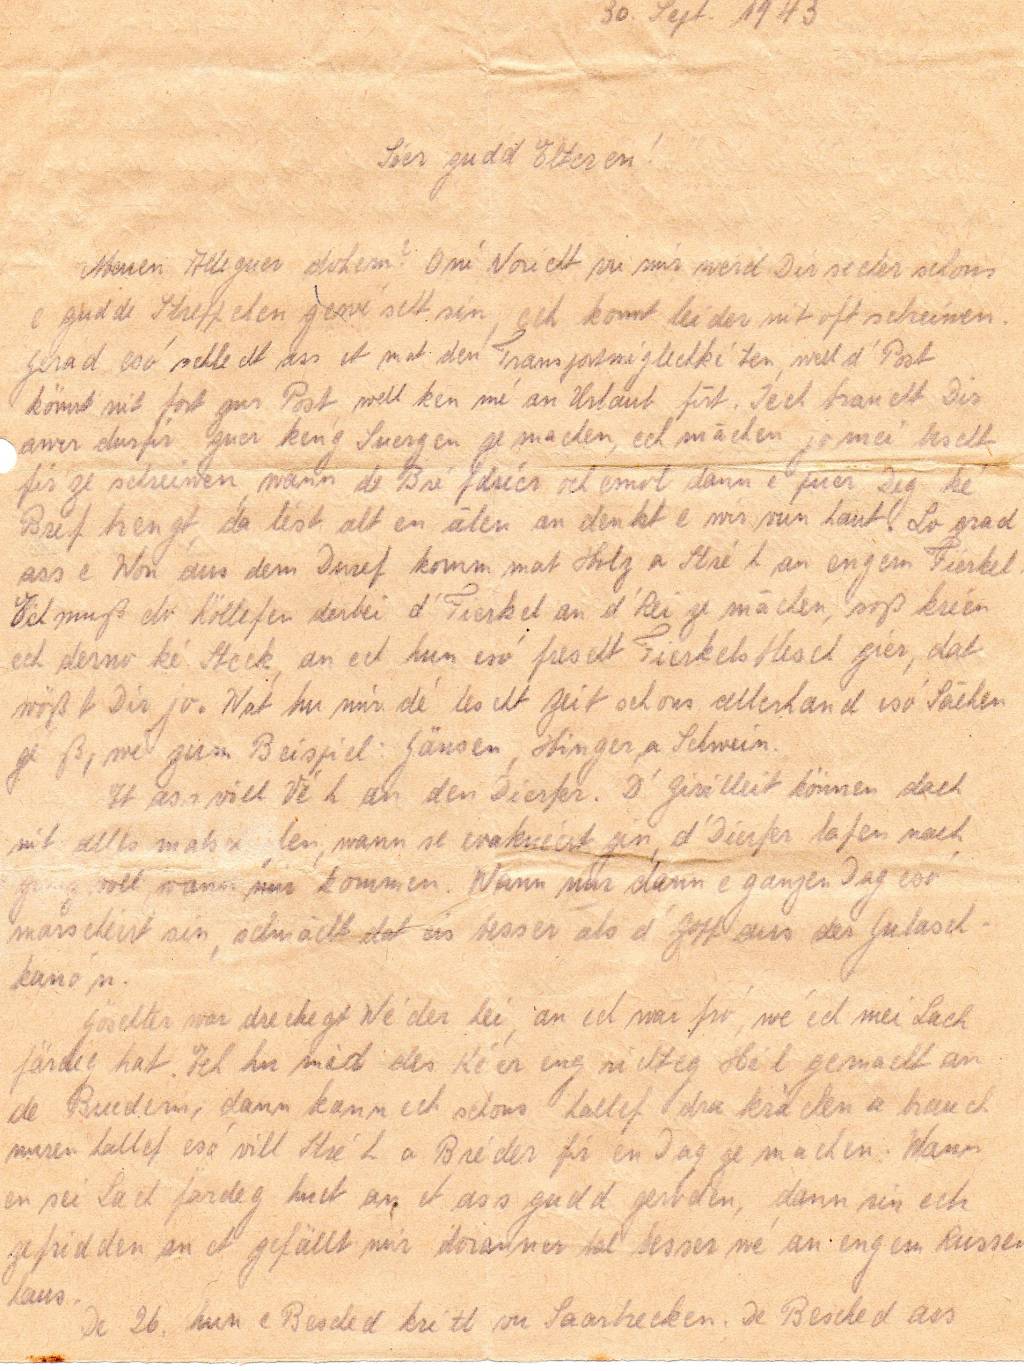 30. Sept. 1943
Léer gudd Elteren!
Muen Alleguer dohem? Oné Noricht vu mir werd Dir secher schons
e gudde Streppchen gewé selt sin, ech komt leider nit oft schreiwen.
Grad esó schlecht ass et mat den Transportmiglechkéten, well d' Post
könnt nit fort gur Post, well ken mé an Urlaub firt. Iech braucht Dir
awer dusfir guer keng Suergen ze machen, ech mächen jo mei bescht
fir ze schreiwen, wann de Bréfdréer och emol dann e puer Deg ké
Bref brengt, da lest alt en alen an denkt e wir vun haut. So grad
ass e Won aus dem Duref komm mat Holz a Stré h an engem Fierkel.
Ech muß elo höllefen derbéi d' Fierkel an d' Rei ze mächen, soß kréen
ech derno ké Steck, an ech hun esó frescht Fierkelsflesch gier, dat
wößt Dir jo. Wat hu mir dé lescht Zeit schons allerhand esó Sächen
ge ß, wé zum Beispiel: Gänsen, Hinger, a Schwein.
Et ass vill Vé h an den Dierfer. D' Zivilleit können dach
nit alles mat len, wann se evakuéert gin, d' Dierfer lafen nach
voll, wann mir kommen. Wann mir dann e ganzen Dag esó
marschéirt sin, schmächt dat äs besser als d' Zopp aus der Gulasch-
kanó n.
Göschter war dreckegt Wé der héi, an ech war fró, wé ech mei Lach
färdeg hat. Ech hu mech des Kéer eng richteg Hé l gemacht an
de Buedem, dann kann ech schons hallef dra kräichen a brauch
nuren hallef esó vill Stré h a Bréder fir en Dag ze machen. Wann
en sei Lach färdeg huet an et ass gudd geroden, dann sin ech
gefridden an et gefällt mir doranner besser wé an engem Russen
haus.
De 26. hun e Besched kritt vu Saarbrecken. De Besched ass